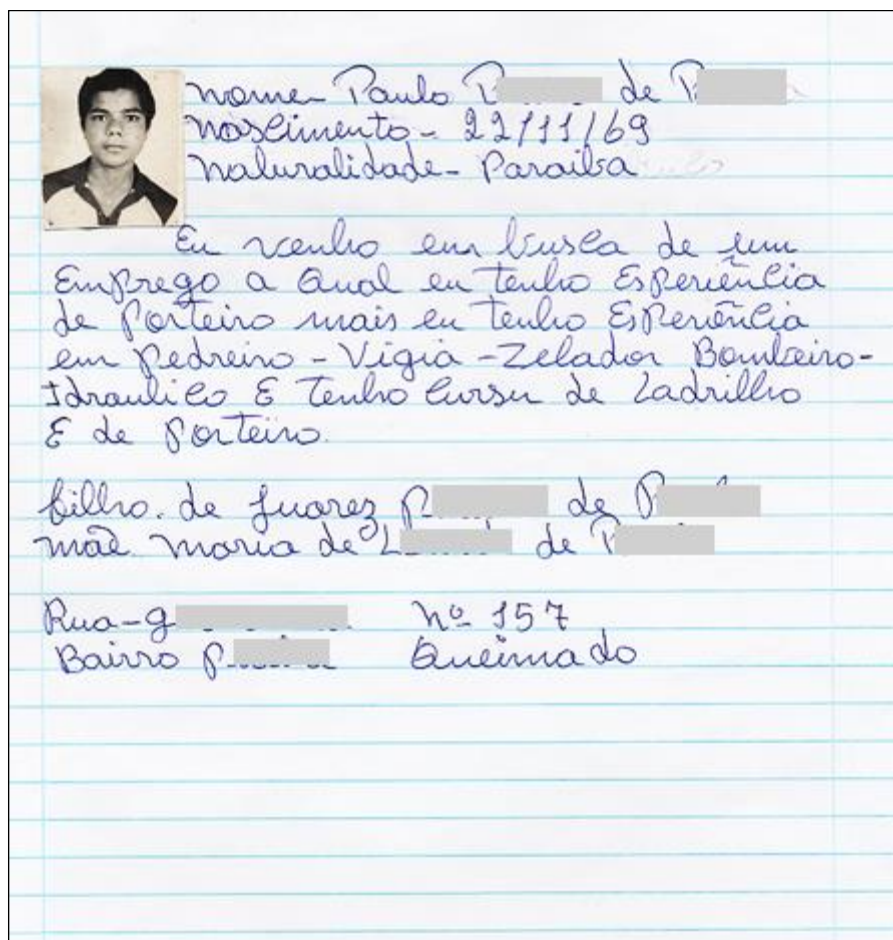 nome- Paulo de
nascimento- 22/11/69
naturalidade- Paraiba
Eu venho em busca de um
Emprego a Qual eu tenho Esperiência
de Porteiro mais eu tenho Esperiência
em Pedreiro - Vigia - Zelador Bombeiro-
Idraulico E Tenho Cursu de Ladrilho
E de Porteiro.
filho. de Juarez de
mãe maria de de
Rua- nº 157
Bairro Queimado